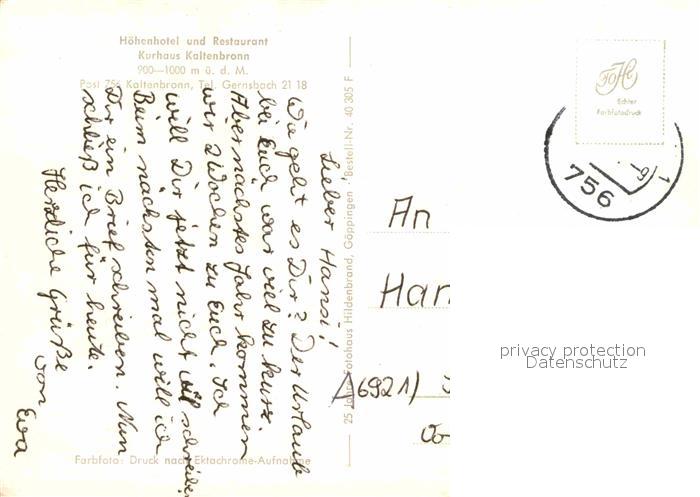 Höhenhotel und Restaurant
Kurhaus Kaltenbronn
900—1000 m ü. d. M.
Post 756 Kaltenbronn, Tel. Gernsbach 21 18
Lieber Hansi!
Wie geht es Dir? Der Urlaub
bei Euch war viel zu kurz.
Aber nächstes Jahr kommen
wir 2 Wochen zu Euch. Ich
will Dir jetzt nicht viel schreiben
Beim nächsten mal will ich
Dir ein Brief schreiben. Nun
schließ ich für heute.
Herzliche Grüße
von
Ewa
Farbfoto: Druck nach Ektachrome-Aufnahme
25 Jahre Fotohaus Hildenbrand, Göppingen · Bestell-Nr. 40 305 F
FoHi
Echter
Farbfotodruck
756
An
Han
6921)
privacy protection
Datenschutz